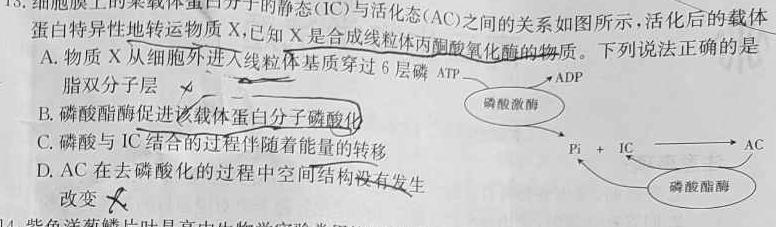 13. 细胞膜上的某载体蛋白分子的静态(IC)与活化态(AC)之间的关系如图所示,活化后的载体
蛋白特异性地转运物质 X,已知 X 是合成线粒体丙酮酸氧化酶的物质。下列说法正确的是
A. 物质 X 从细胞外进入线粒体基质穿过 6 层磷
脂双分子层
B. 磷酸酯酶促进该载体蛋白分子磷酸化
C. 磷酸与 IC 结合的过程伴随着能量的转移
D. AC 在去磷酸化的过程中空间结构没有发生
改变
ATP
ADP
磷酸激酶
Pi + IC
AC
磷酸酯酶